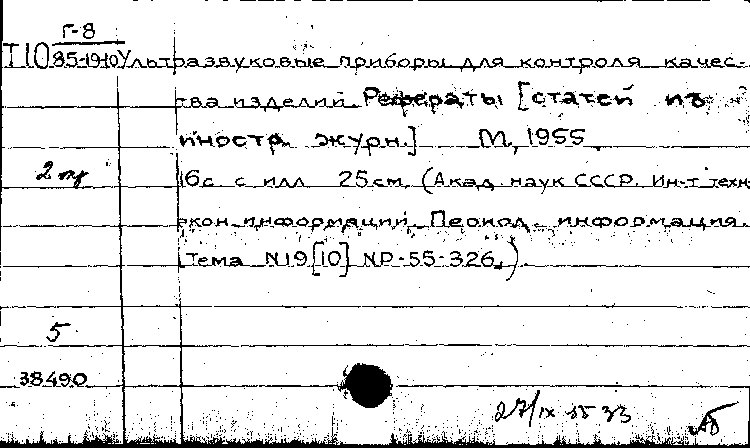 Г-8
Т10 85-1940 Ультразвуковые приборы для контроля качес-
тва изделий. Рефераты [статей из
иностр. журн.] М., 1955.
2 тр 16с. с илл. 25см. (Акад. наук СССР. Ин-т техн.
экон. информации. Период. информация.
Тема N19[10] NР-55-326.).
5
38490
27/IX 55 33